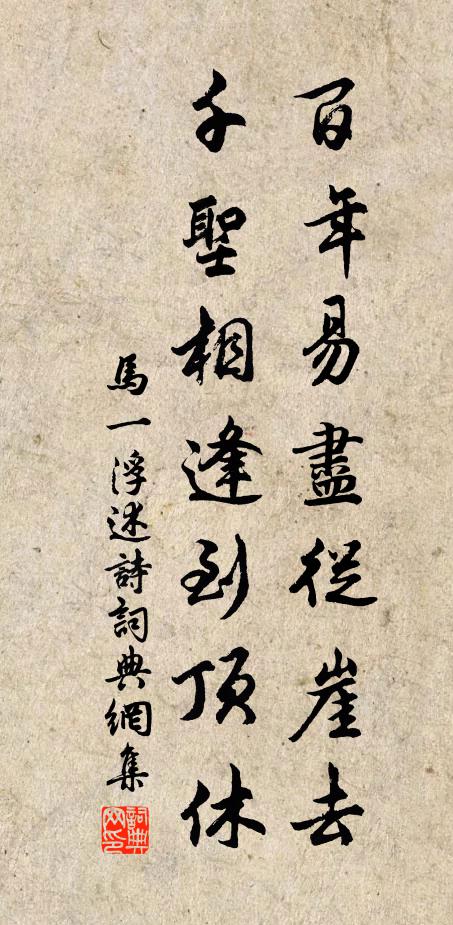 百年易盡從崖去
千聖相逢到頂休
馬一浮述詩詞典網集
詞典網印